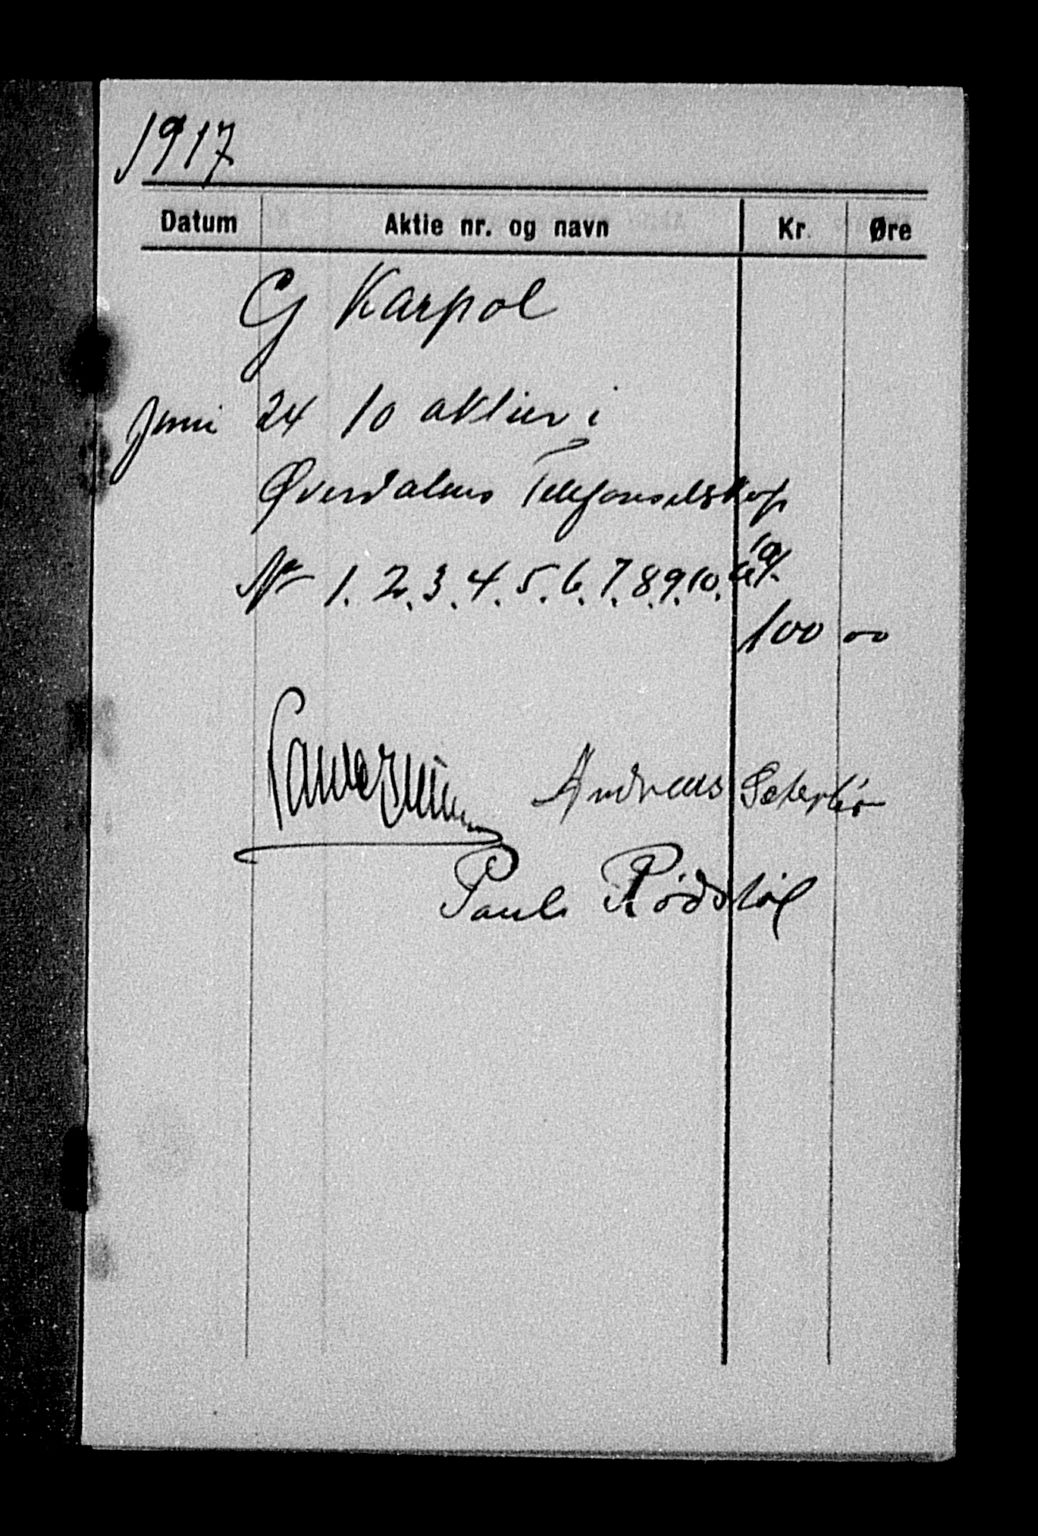 1917
Datum Aktie nr. og navn Kr. Øre
G Karpol
Juni 24 10 aktier i
Øverdalens Telefonselskap
Nr 1. 2. 3. 4. 5. 6. 7. 8. 9. 10. a 10/.
100 00
Andreas Seterbø
Paul Rødstøl